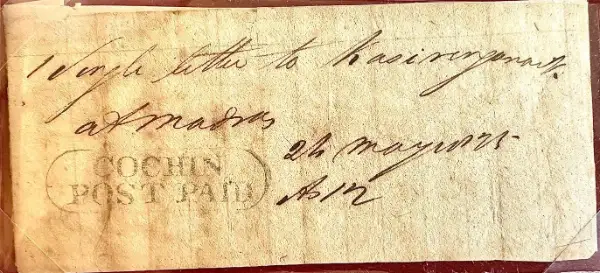 1 Single letter to
at madras
COCHIN
POST PAID
May 1825
As 12